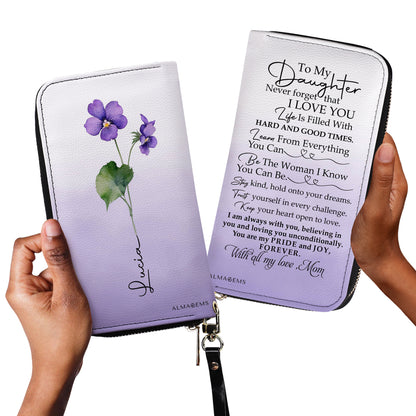 Lucia
ALMAGEMS
To My
Daughter
Never forget that
I LOVE YOU
Life Is Filled With
HARD AND GOOD TIMES.
Learn From Everything
You Can
Be The Woman I Know
You Can Be.
Stay kind, hold onto your dreams.
Trust yourself in every challenge.
Keep your heart open to love.
I am always with you, believing in
you and loving you unconditionally.
You are my PRIDE and JOY,
FOREVER.
With all my love, Mom
ALMAGEMS